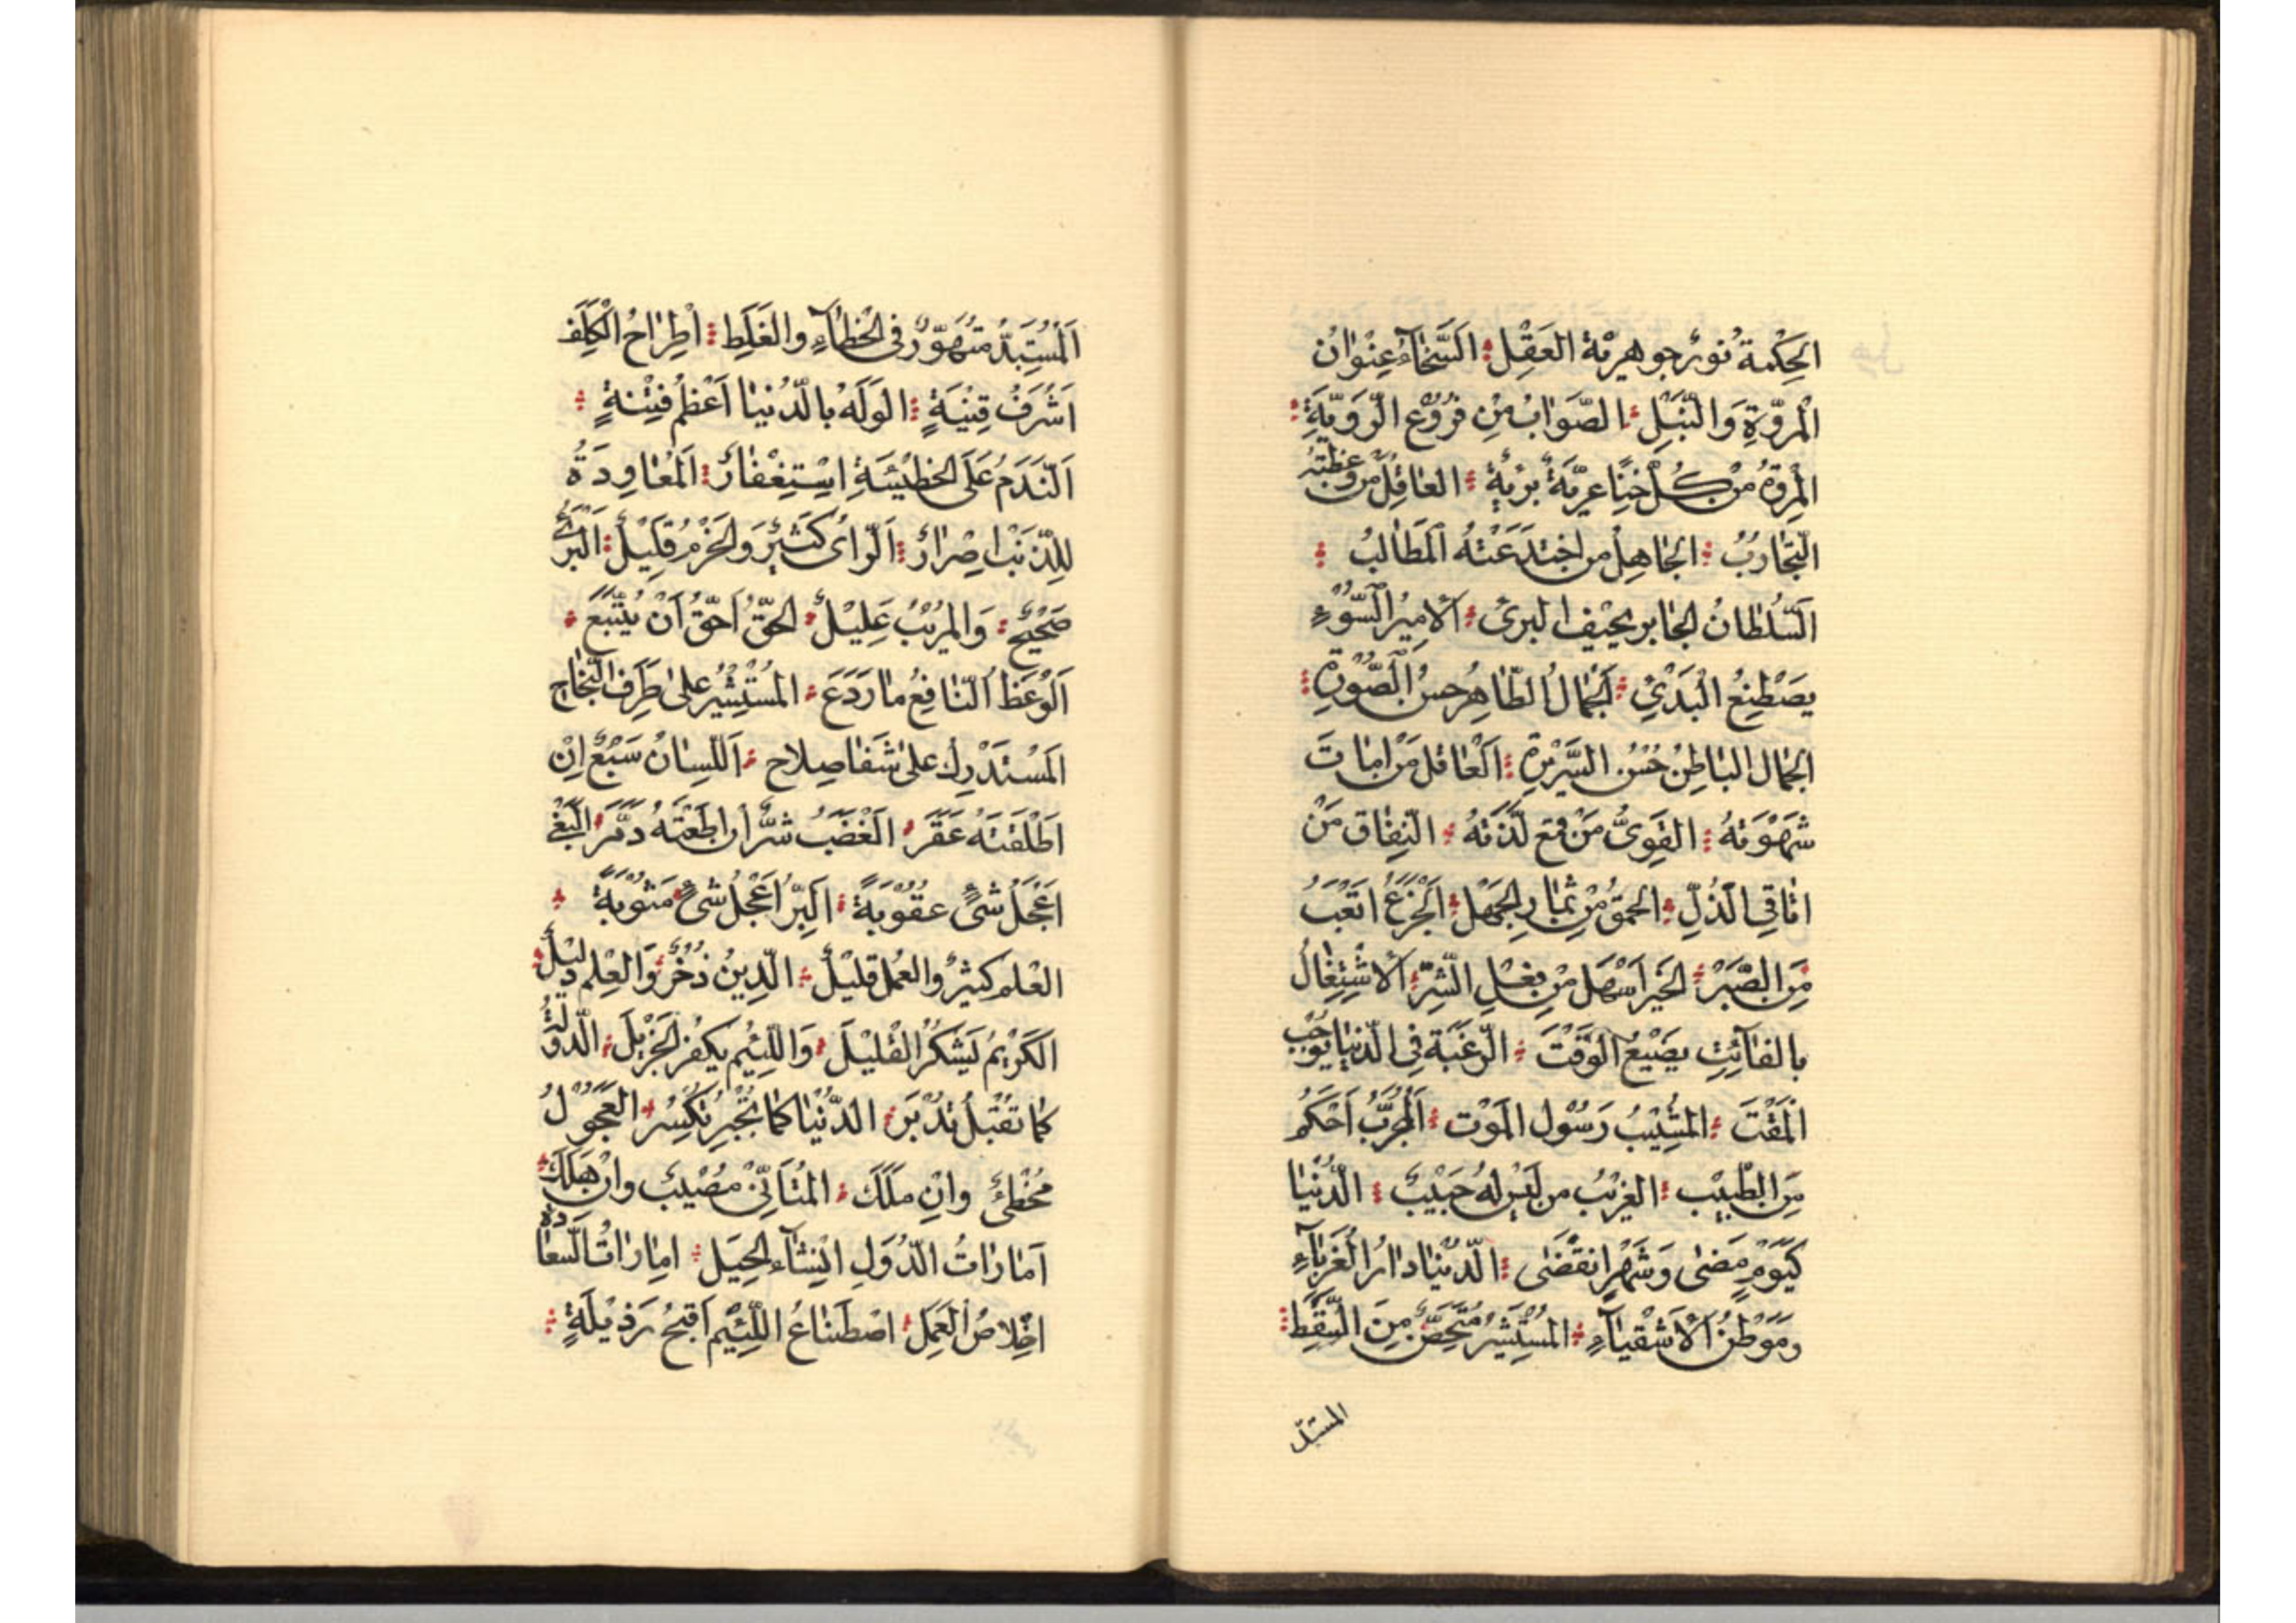 الحِكْمة نُورٌ جوهرية العَقْل السَّخآءُ عِنْوانُ
الْمروّةِ وَالنُّبْلِ الصَّوَابُ مِنْ فُرُوْعِ الرَّوِيَّةِ
المروة من كُلّ خَنًا عرِيّةٌ بريةٌ العاقِلُ من وعَظَتْهُ
التّجَاربُ الجَاهِلُ من اختدَعَتْهُ الَمطَالبُ
السّلطانُ الجابر يحيف البرئ الامِيرُ السُّوْءِ
يصْطَنِعُ الْبَذْيِّ الجَمالُ الظّاهِر حسنُ الصُّوْرةِ
الجمال الباطِنُ حُسْن السَّرِيْرة اَلْعاقل مَنْ امات
شهْوَتهُ القَوِىُّ مَنْ قمع لَذّتهُ النّفاق مَنْ
اثافي الذُّلِّ الحمقُ مِنْ ثمار الجَهْل اَلْجَزَعُ اتعَبُ
مِنَ الصَّبْر الخَير اَسْهَل مِنْ فِعْلِ الشّرّ الاشْتِغالُ
بالفآئِتِ يضَيّعُ الوَقْتَ الرّغبَة فِي الدّنيا يُوْجبُ
الْمَقْتَ المشِيْبُ رَسُوْل الموْت اَلُمجَرّبُ اَحْكَمُ
مِنَ الطّبِيْب الغريْبُ من لَيْس لهُ حَبِيْبٌ الدُّنْيَا
كَيَوْمٍ مَضىٰ وَشَهْرٍ انقَضىٰ الدّنْيا دارُ الغُرَبآءِ
ومَوْطنُ الْاَشْقيآءِ المُسْتَشِيْرُ مُتَحَصِّنٌ مِنَ السَّقَطِ
المستبدّ
اَلْمُسْتَبِدُّ متَهَوّرٌ فى الخطآءِ والغَلَطِ اطِرَاحُ الْكُلَف
اَشْرَفُ قِنْيَةٍ الوَلَهُ بالدّنيا اَعْظمُ فِتْنةٍ
اَلنّدَمُ عَلَى الخطيْئَةِ اسْتِغْفارٌ اَلْمُعاوِدَةُ
لِلذّنْب اِصْرارٌ اَلرّاىُ كَثِيْرٌ وَالحَزْمُ قَلِيْلٌ البَرئُ
صَحِيْحٌ وَالمُرِيْبُ عَلِيْلٌ الحقّ اَحَقّ اَنْ يُتّبَعَ
اَلْوَعْظُ النّافِعُ ما رَدَعَ المُسْتَشِيْرُ علىٰ طَرِف النّجاحِ
المسْتَدْرِك علىٰ شَفا صلاح اَللّسانُ سَبْعٌ اِنْ
اَطْلَقتَهُ عَقَرَ الْغضَبُ شرٌّ ان اطعْتَهُ دمّرَ البَغْىُ
اعْجَلُ شىْءٍ عقُوْبَةً اَلبِرّ اَعْجَلُ شىْءٍ مَثوبةً
العلم كثِيرٌ والعمل قليْلٌ الدِّينُ ذُخْرٌ وَالْعِلمِ دليْلٌ
الكَرِيْمُ يَشكُرُ القْليْلَ وَاللّئِيْم يكفُر الجَزيْلَ الدّوْلَةُ
كما تُقْبِلُ تدْبرَ الدّنْيا كما تُجْبِر تَكْسِرُ العَجُوْلُ
مخْطِئٌ وانْ مَلَكَ المُتأنّيْ مُصِيْبٌ وانْ هَلَكَ
اَماراتُ الدُّوَلِ انْشآء الحِيَل اماراتُ السّعادة
اخْلاصُ العَمَل اصْطَناعُ اللّئِيْم اَقبَحُ رَذِيْلَةٍ